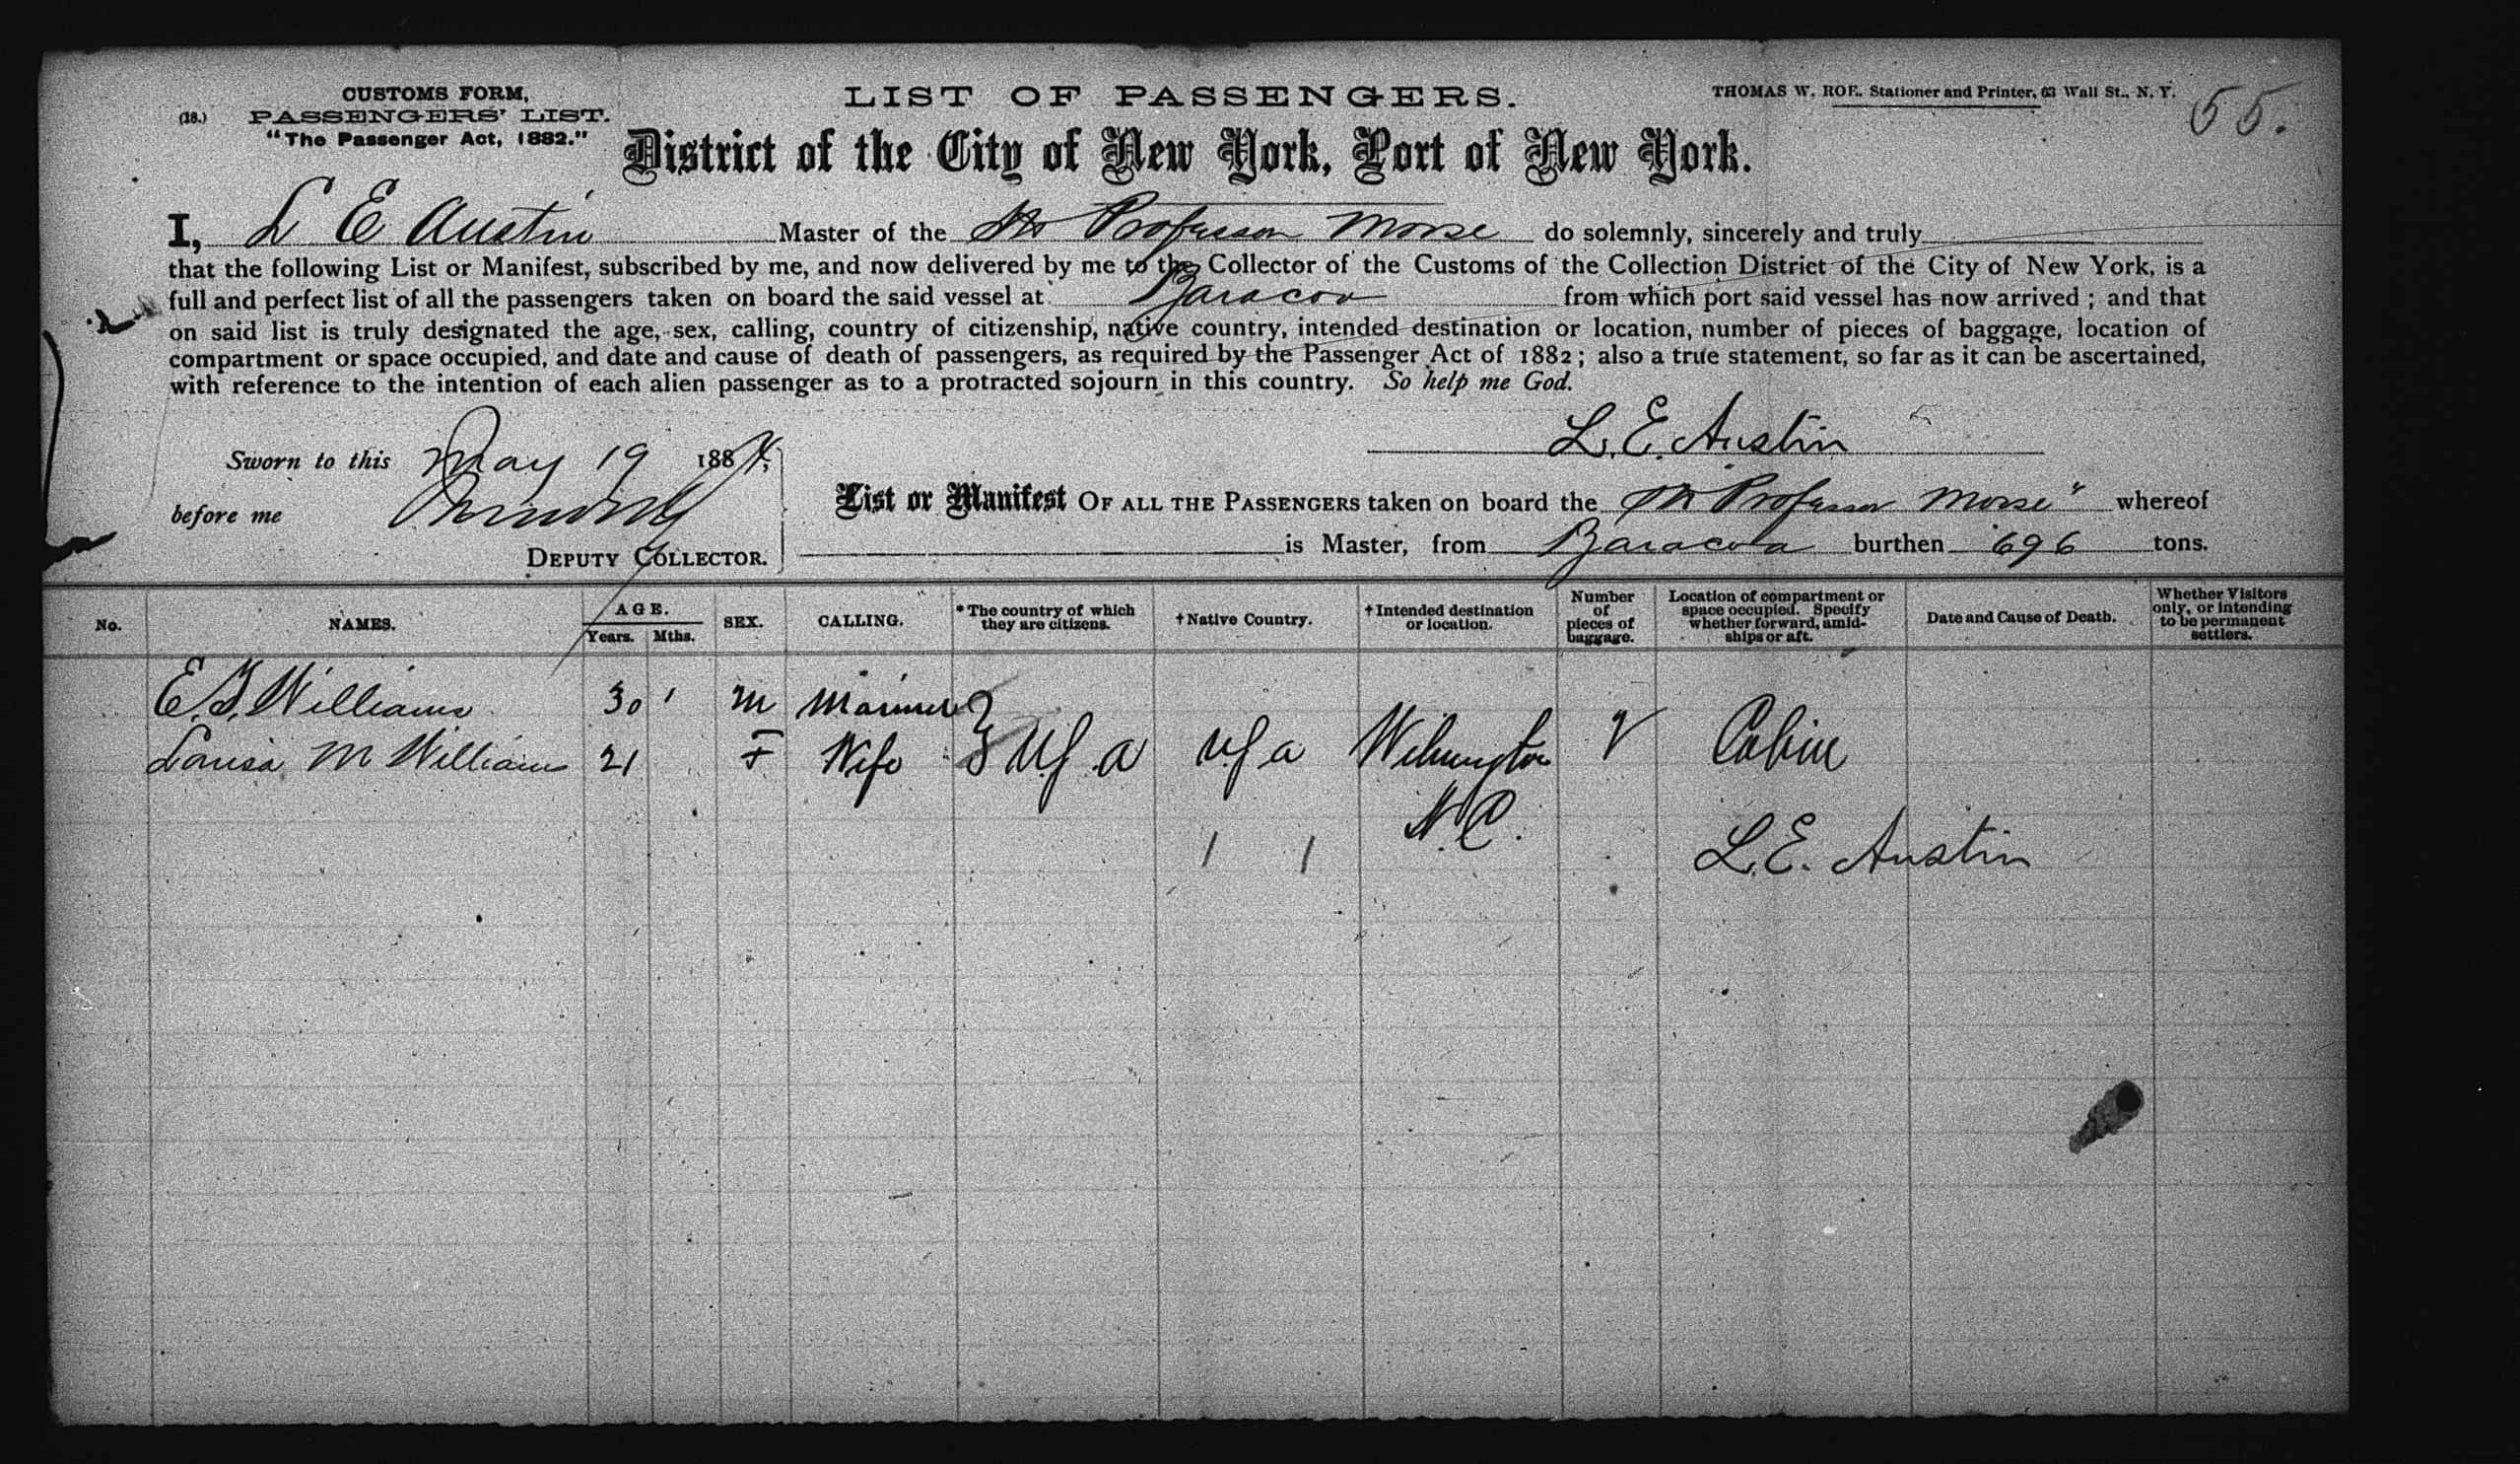 CUSTOMS FORM,
(18.) PASSENGERS' LIST.
"The Passenger Act, 1882."
LIST OF PASSENGERS.
THOMAS W. ROE. Stationer and Printer, 63 Wall St., N. Y.
55.
District of the City of New York, Port of New York.
I, L E Austin Master of the Professor Morse do solemnly, sincerely and truly
that the following List or Manifest, subscribed by me, and now delivered by me to the Collector of the Customs of the Collection District of the City of New York, is a
full and perfect list of all the passengers taken on board the said vessel at Baracoa from which port said vessel has now arrived; and that
on said list is truly designated the age, sex, calling, country of citizenship, native country, intended destination or location, number of pieces of baggage, location of
compartment or space occupied, and date and cause of death of passengers, as required by the Passenger Act of 1882; also a true statement, so far as it can be ascertained,
with reference to the intention of each alien passenger as to a protracted sojourn in this country. So help me God.
L. E. Austin
Sworn to this May 19 1884.
before me
DEPUTY COLLECTOR.
List or Manifest OF ALL THE PASSENGERS taken on board the Professor Morse" whereof
is Master, from Baracoa burthen 696 tons.
No. NAMES. AGE. Years. Mths. SEX. CALLING. *The country of which they are citizens. †Native Country. †Intended destination or location. Number of pieces of baggage. Location of compartment or space occupied. Specify whether forward, amidships or aft. Date and Cause of Death. Whether Visitors only, or intending to be permanent settlers.
Williams 30 M Mariner
Louisa M Williams 21 F Wife U S A U S A Wilmington Cabin
N. C.
L. E. Austin